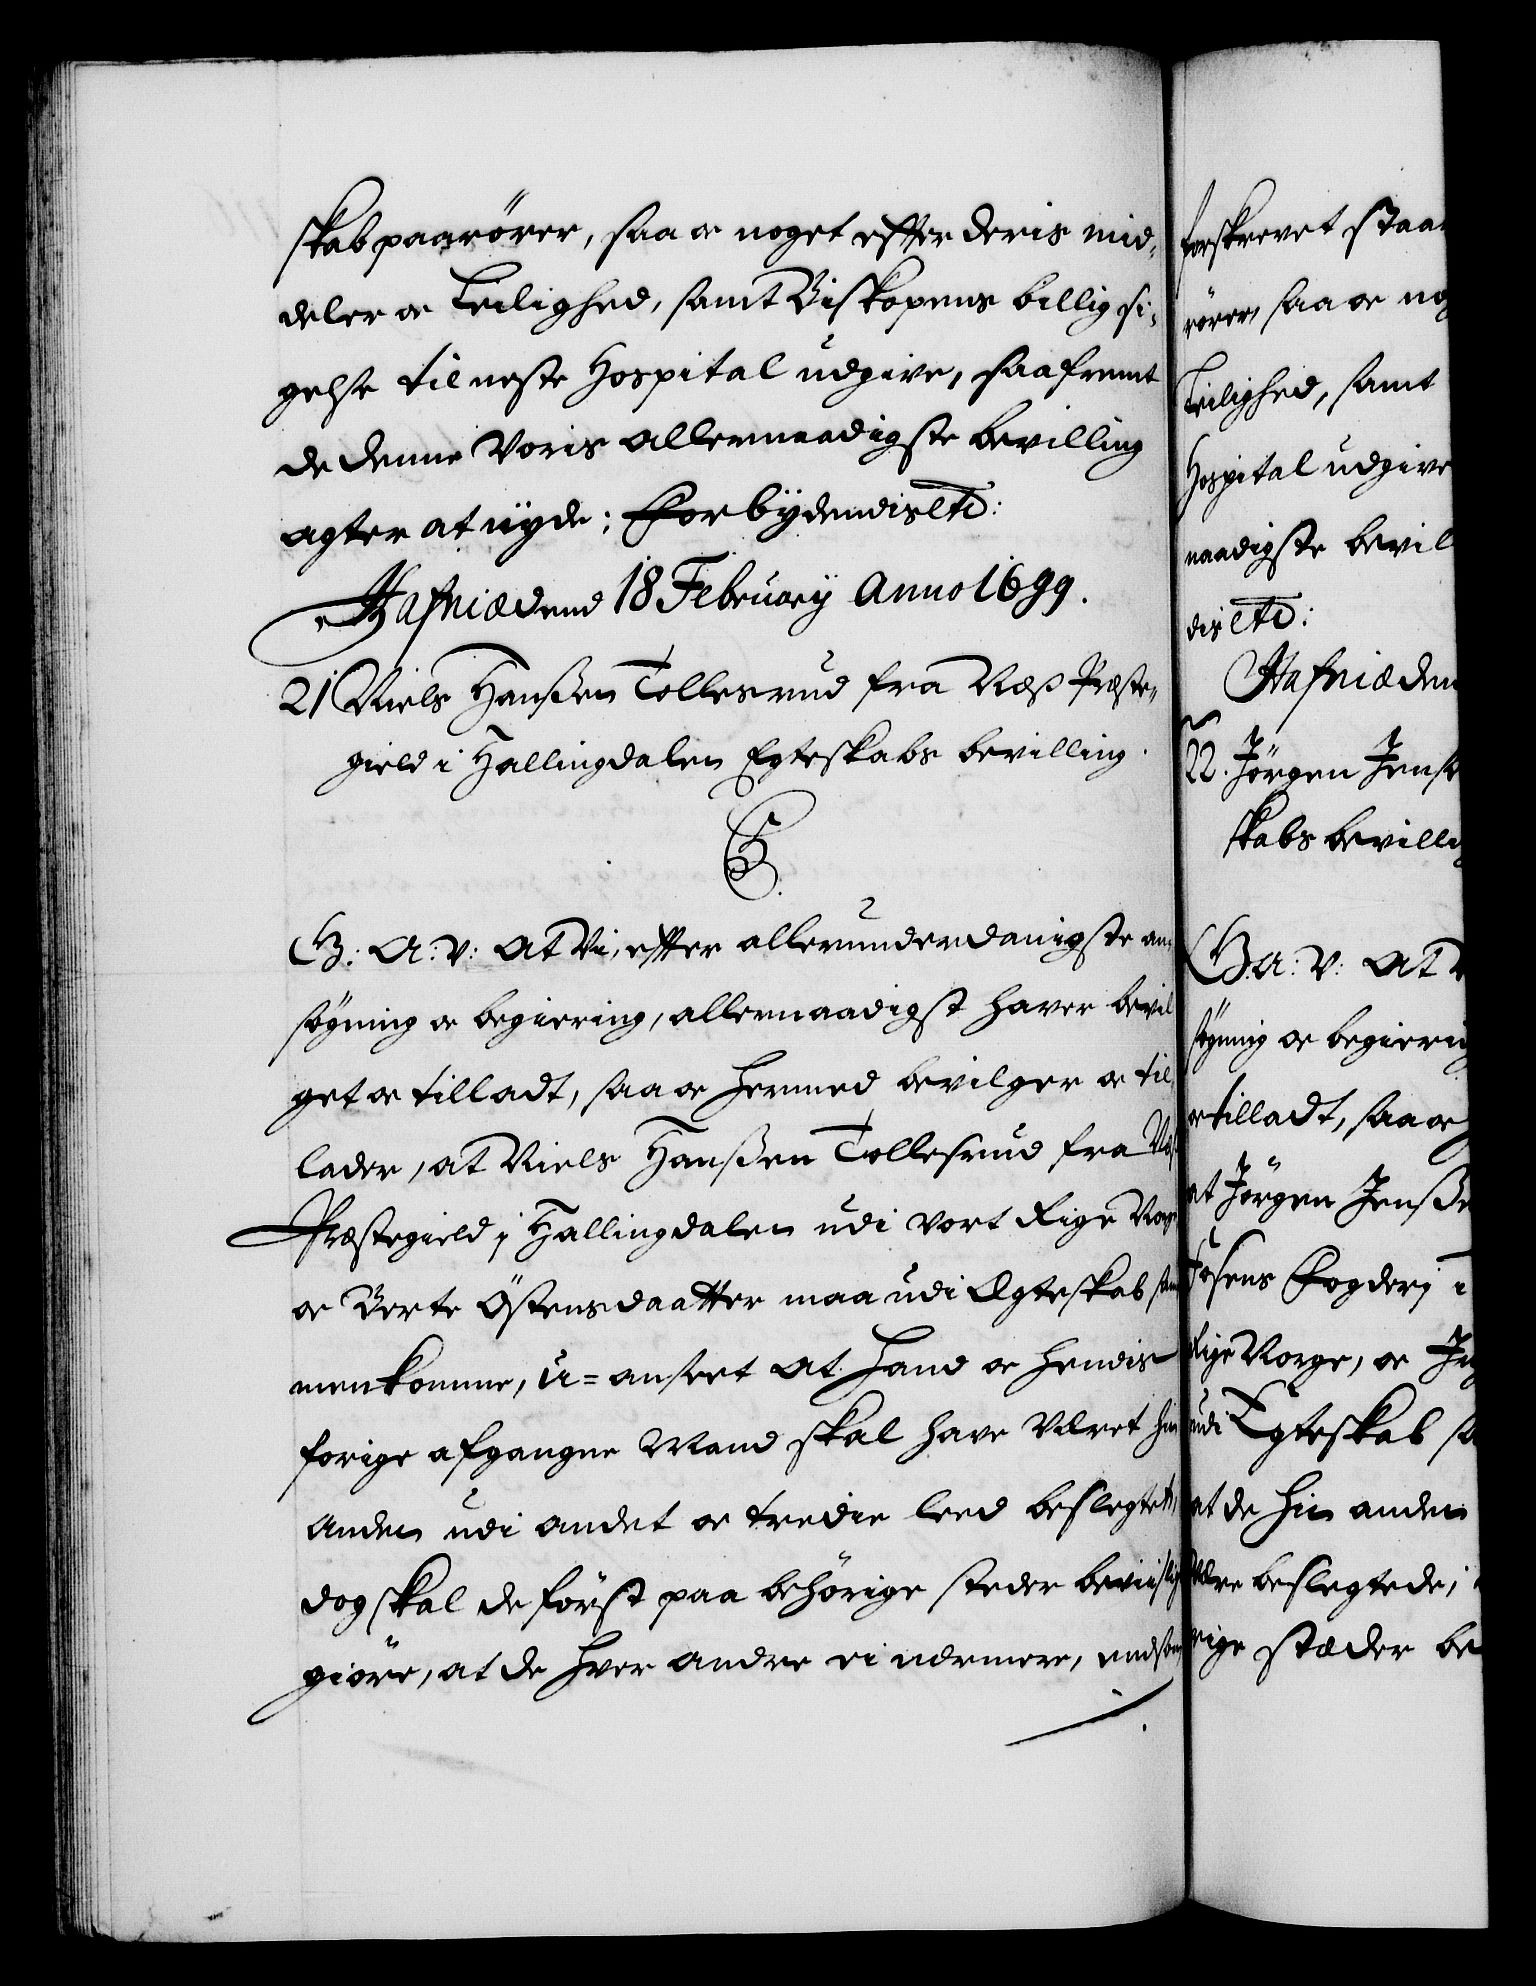 skab paarører, saa oc noget effter deris mid„
deler oc Leilighed, samt Biskopens billig si„
gelse til neste Hospital udgive, saafremt
de denne Voris allernaadigste bevilling
agter at nyde; Forbydendis etc:
Hafniæ dend 18 February Anno 1699.
21 Niels Hanßen Tollesrud fra Næß Præste„
gield i Hallingdalen Egteskabs bevilling.
C5.
G: A: V: At Vi, effter allerunderdanigste an„
søgning oc begiering, allernaadigst haver bevil
get oc tilladt, saa oc hermed bevilger oc til
lader, at Niels Hanßen Tollesrud fra Næß
Præstegield i Hallingdalen udi vort Rige Norge
oc Berte Østensdaatter maa udi Ægteskab sam
menkomme, U=anseet at hand oc hendis
forige afgangne Mand skal have Været hin
anden udi andet oc tredie leed beslegtet,
dog skal de først paa behørige steder beviislig
giøre, at de hver andre ei nermere, end som
forskrevet staar
rører, saa oc nog
Leilighed, samt
Hospital udgive
naadigste bevil
dis etc:
Hafniæ den
22. Jörgen Jense
skabs bevillig
G: A: V: At V
søgning oc begiering
oc tilladt, saa oc
at Jörgen Jenße
Fosens Fogderj i
Rige Norge, oc
udi Egteskab sa
at de hin anden
Være beslegtede;
rige stæder be